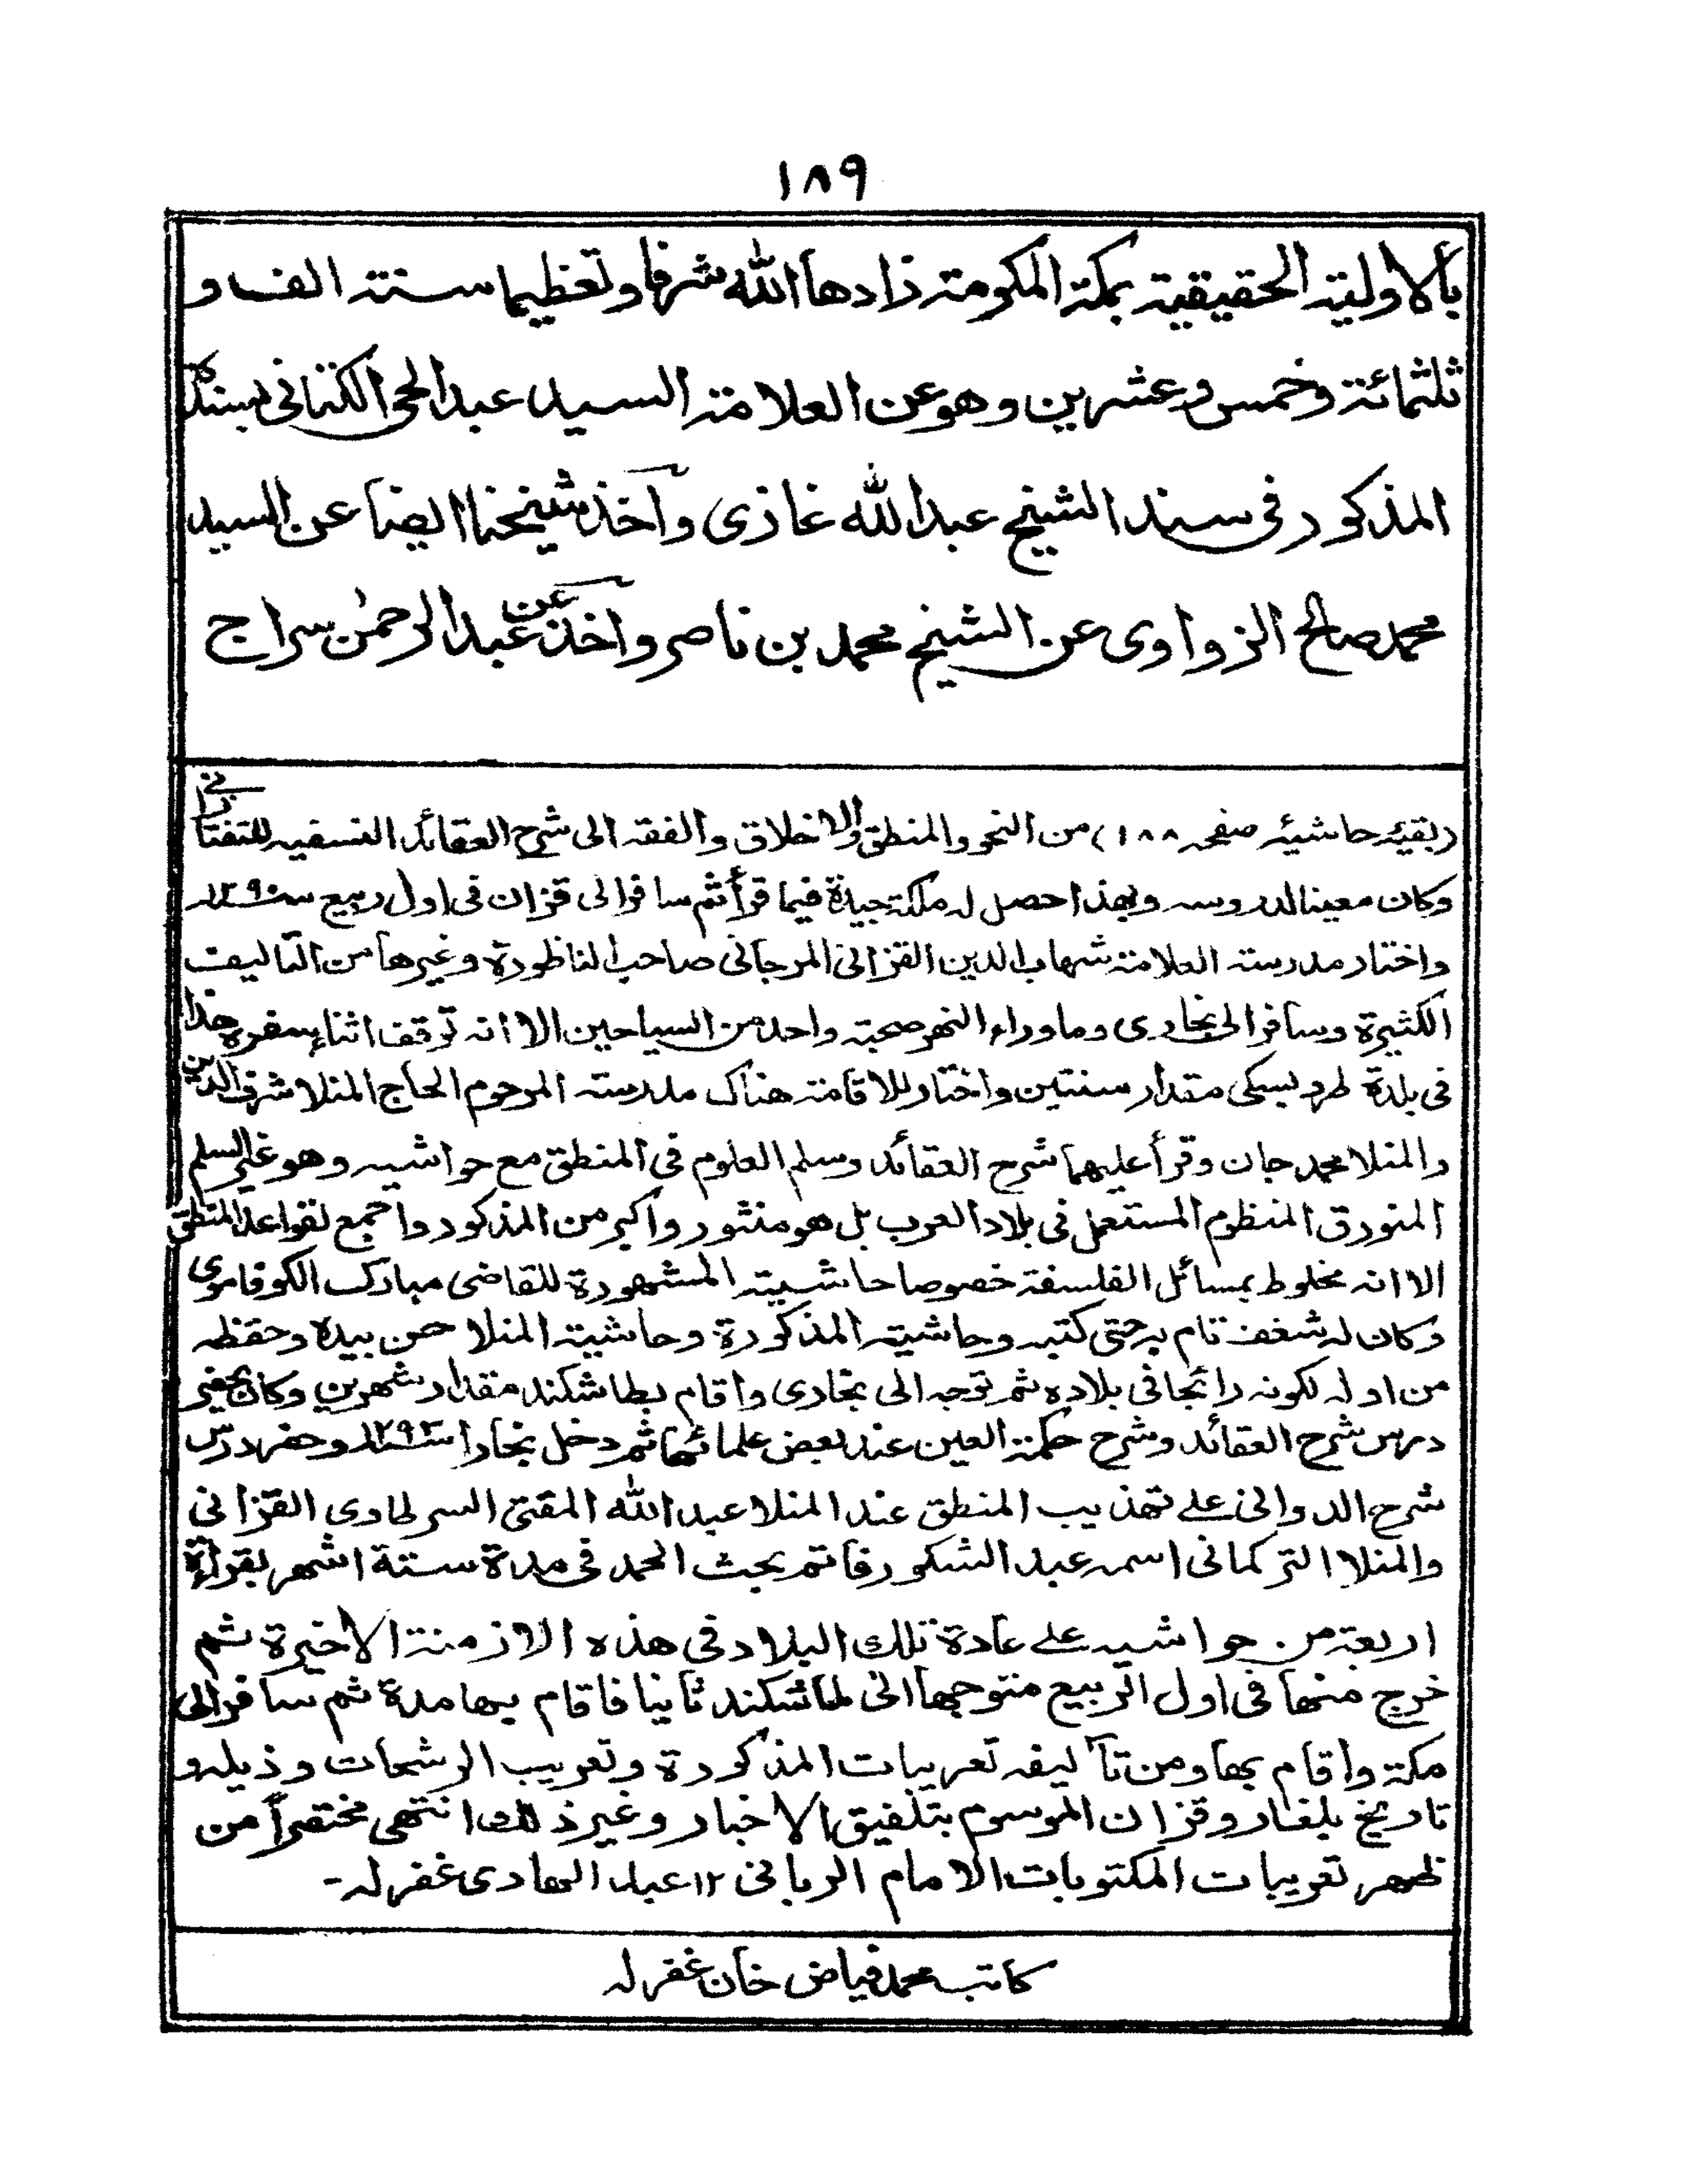 ١٨٩
بالاولية الحقيقية بمكة المكرمة زادها الله شرفا وتعظيما سنة الف و
ثلثمائة وخمس وعشرين وهو عن العلامة السيد عبد الحى الكتانى بسنده
المذكور فى سند الشيخ عبد الله غازى وآخذ شيخنا ايضا عن السيد
محمد صالح الزواوى عن الشيخ محمد بن ناصر واخذ عن عبد الرحمٰن سراج
(بقيۂ حاشيئہ صفحہ ١٨٨) من النحو والمنطق والاخلاق والفقه الى شرح العقائد النسفيه للتفتازانى
وكان معينا لدروسه وبهذا حصل له ملكة جيدة فيما قرأ ثم سافر الى قزان فى اول ربيع سنة ١٢٩٠
واختار مدرسته العلامة شهاب الدين القزانى المرجانى صاحب الناظورة وغيرها من التآليف
الكثيرة وسافر الى بخارى وما وراء النهر صحبة واحد من السياحين الا انه توقف اثناء سفره هذا
فى بلدة طرويسكى مقدار سنتين واختار للاقامة هناك مدرسته المرحوم الحاج المنلا شرف الدين
والمنلا محمد جان وقرأ عليهما شرح العقائد وسلم العلوم فى المنطق مع حواشيه وهو غير السلم
المنورق المنظوم المستعمل فى بلاد العرب بل هو منثور واكبر من المذكور واجمع لقواعد المنطق
الا انه مخلوط بمسائل الفلسفة خصوصا حاشيته المشهورة للقاضى مبارك الكوفاموى
وكان له شغف تام به حتى كتبه وحاشيته المذكورة وحاشية المنلا حسن بيده وحفظه
من اوله لكونه رائجا فى بلاده ثم توجه الى بخارى واقام بطاشكند مقدار شهرين وكان يحضر
درس شرح العقائد وشرح حكمة العين عند بعض علمائها ثم دخل بخارا سنة ١٢٩٣ وحضر درس
شرح الدوانى على تهذيب المنطق عند المنلا عبد الله المفتى السرطاوى القزانى
والمنلا التركمانى اسمه عبد الشكور فاتم بحث الحمد فى مدة ستة اشهر بقراءة
اربعة من حواشيه على عادة تلك البلاد فى هذه الازمنة الاخيرة ثم
خرج منها فى اول الربيع متوجها الى طاشكند ثانيا فاقام بها مدة ثم سافر الى
مكة واقام بها ومن تآليفه تعريبات المذكورة وتعريب الرشحات وذيله و
تاريخ بلغار وقزان الموسوم بتلفيق الاخبار وغير ذلك انتهى مختصراً من
ظهر تعريبات المكتوبات الامام الربانى ١٢ عبد الهادى غفر له-
كاتب محمد فياض خان غفر له